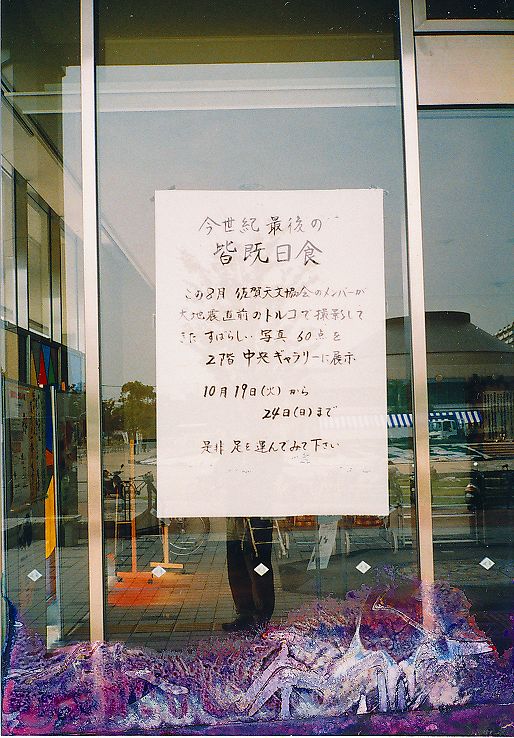 今世紀 最後の
皆既日食
この8月 佐賀天文協会のメンバーが
大地震直前のトルコで撮影して
きた すばらしい 写真 60点を
2階 中央ギャラリーに展示
10月19日(火)から
24日(日)まで
是非 足を運んでみて下さい